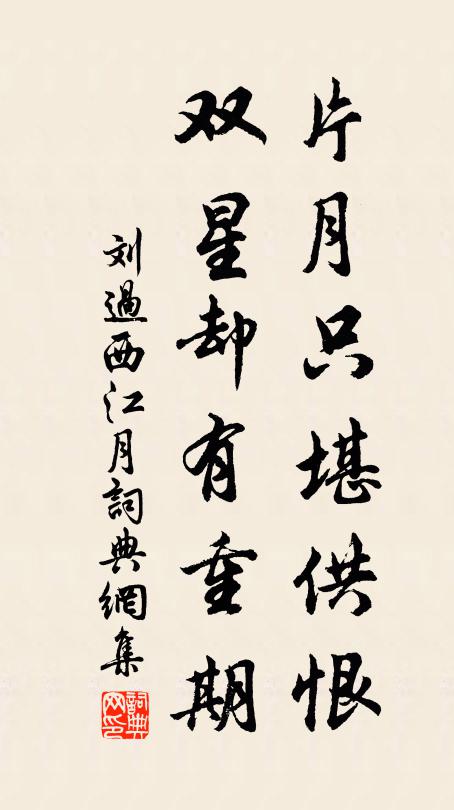 片月只堪供恨
双星却有重期
刘過西江月詞典網集
詞典網印